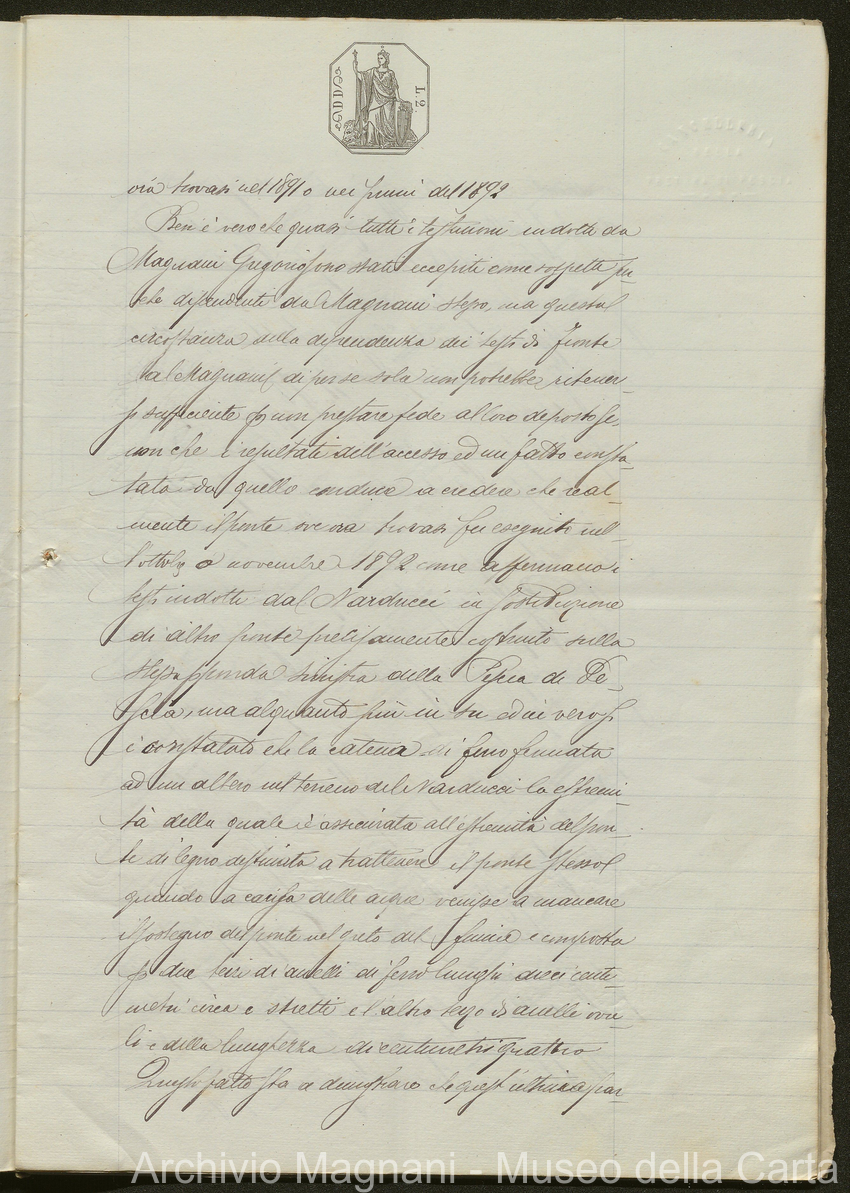 L. 2.
via trovasi nel 1891 o nei primi del 1892
Ben è vero che quasi tutti i testimoni indotti da
Magnani Gregorio sono stati eccepiti come sospetti per
che dipendenti da Magnani stesso, ma questa
circostanza della dipendenza dei testi di fronte
al Magnani di per se sola non potrebbe ritener-
si sufficiente p non prestare fede al loro deposto se
non che i resultati dell'accesso ed un fatto consta
tato da quello conduce a credere che real-
mente il ponte ove ora trovasi fu eseguito nell'
8ottobre o novembre 1892 come affermano i
testi indotti dal Narducci in sostituzione
di altro ponte precisamente costruito sulla
stessa sponda sinistra della Pescia di Pe-
scia, ma alquanto più in su ed in vero si
è constatato che la catena di ferro fermata
ad un albero nel terreno del Narducci la estremi-
tà della quale è assicurata all'estremità del pon-
te di legno destinata a trattenere il ponte stesso
quando a causa delle acque venisse a mancare
il sostegno del ponte nel greto del fiume è composta
p due terzi di anelli di ferro lunghi dieci centi-
metri circa e stretti e l'altro terzo di anelli ova-
li e della lunghezza di centimetri quattro
Questo fatto sta a dimostrare che quest'ultima par-
Archivio Magnani - Museo della Carta